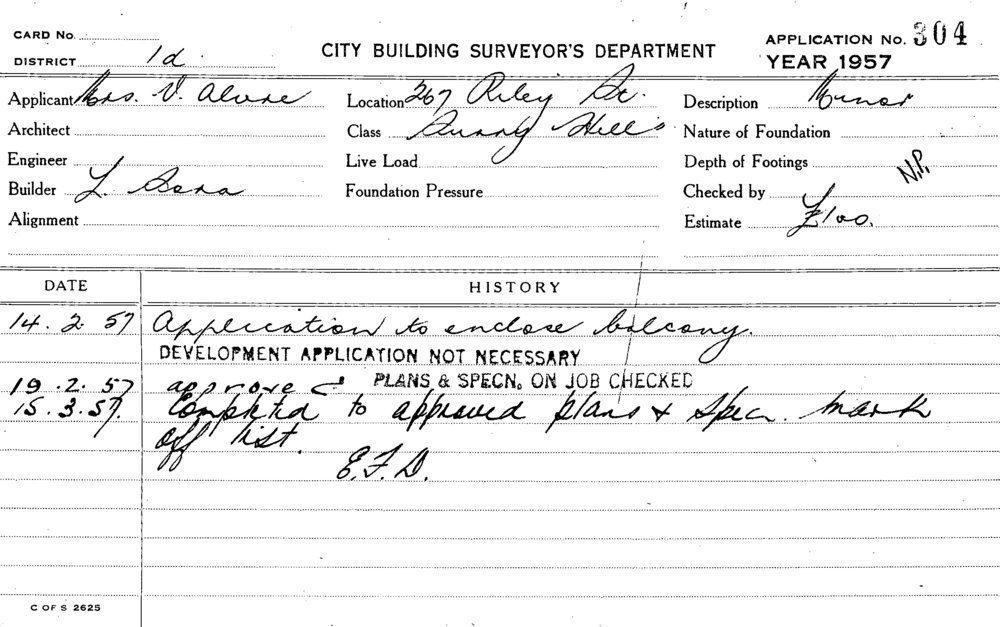 CARD No.
DISTRICT 1d.
CITY BUILDING SURVEYOR'S DEPARTMENT
APPLICATION No. 304
YEAR 1957
Applicant Mrs. V.
Location 267 Riley St.
Description Minor
Architect
Class Surry Hills
Nature of Foundation
Engineer
Live Load
Depth of Footings
N.P.
Builder L.
Foundation Pressure
Checked by
Alignment
Estimate £100.
DATE HISTORY
14.2.57 Application to enclose balcony.
DEVELOPMENT APPLICATION NOT NECESSARY
19.2.57 approved PLANS & SPECN. ON JOB CHECKED
15.3.57. Completed to approved plans & specn. mark
off list.
E.F.D.
C OF S 2625